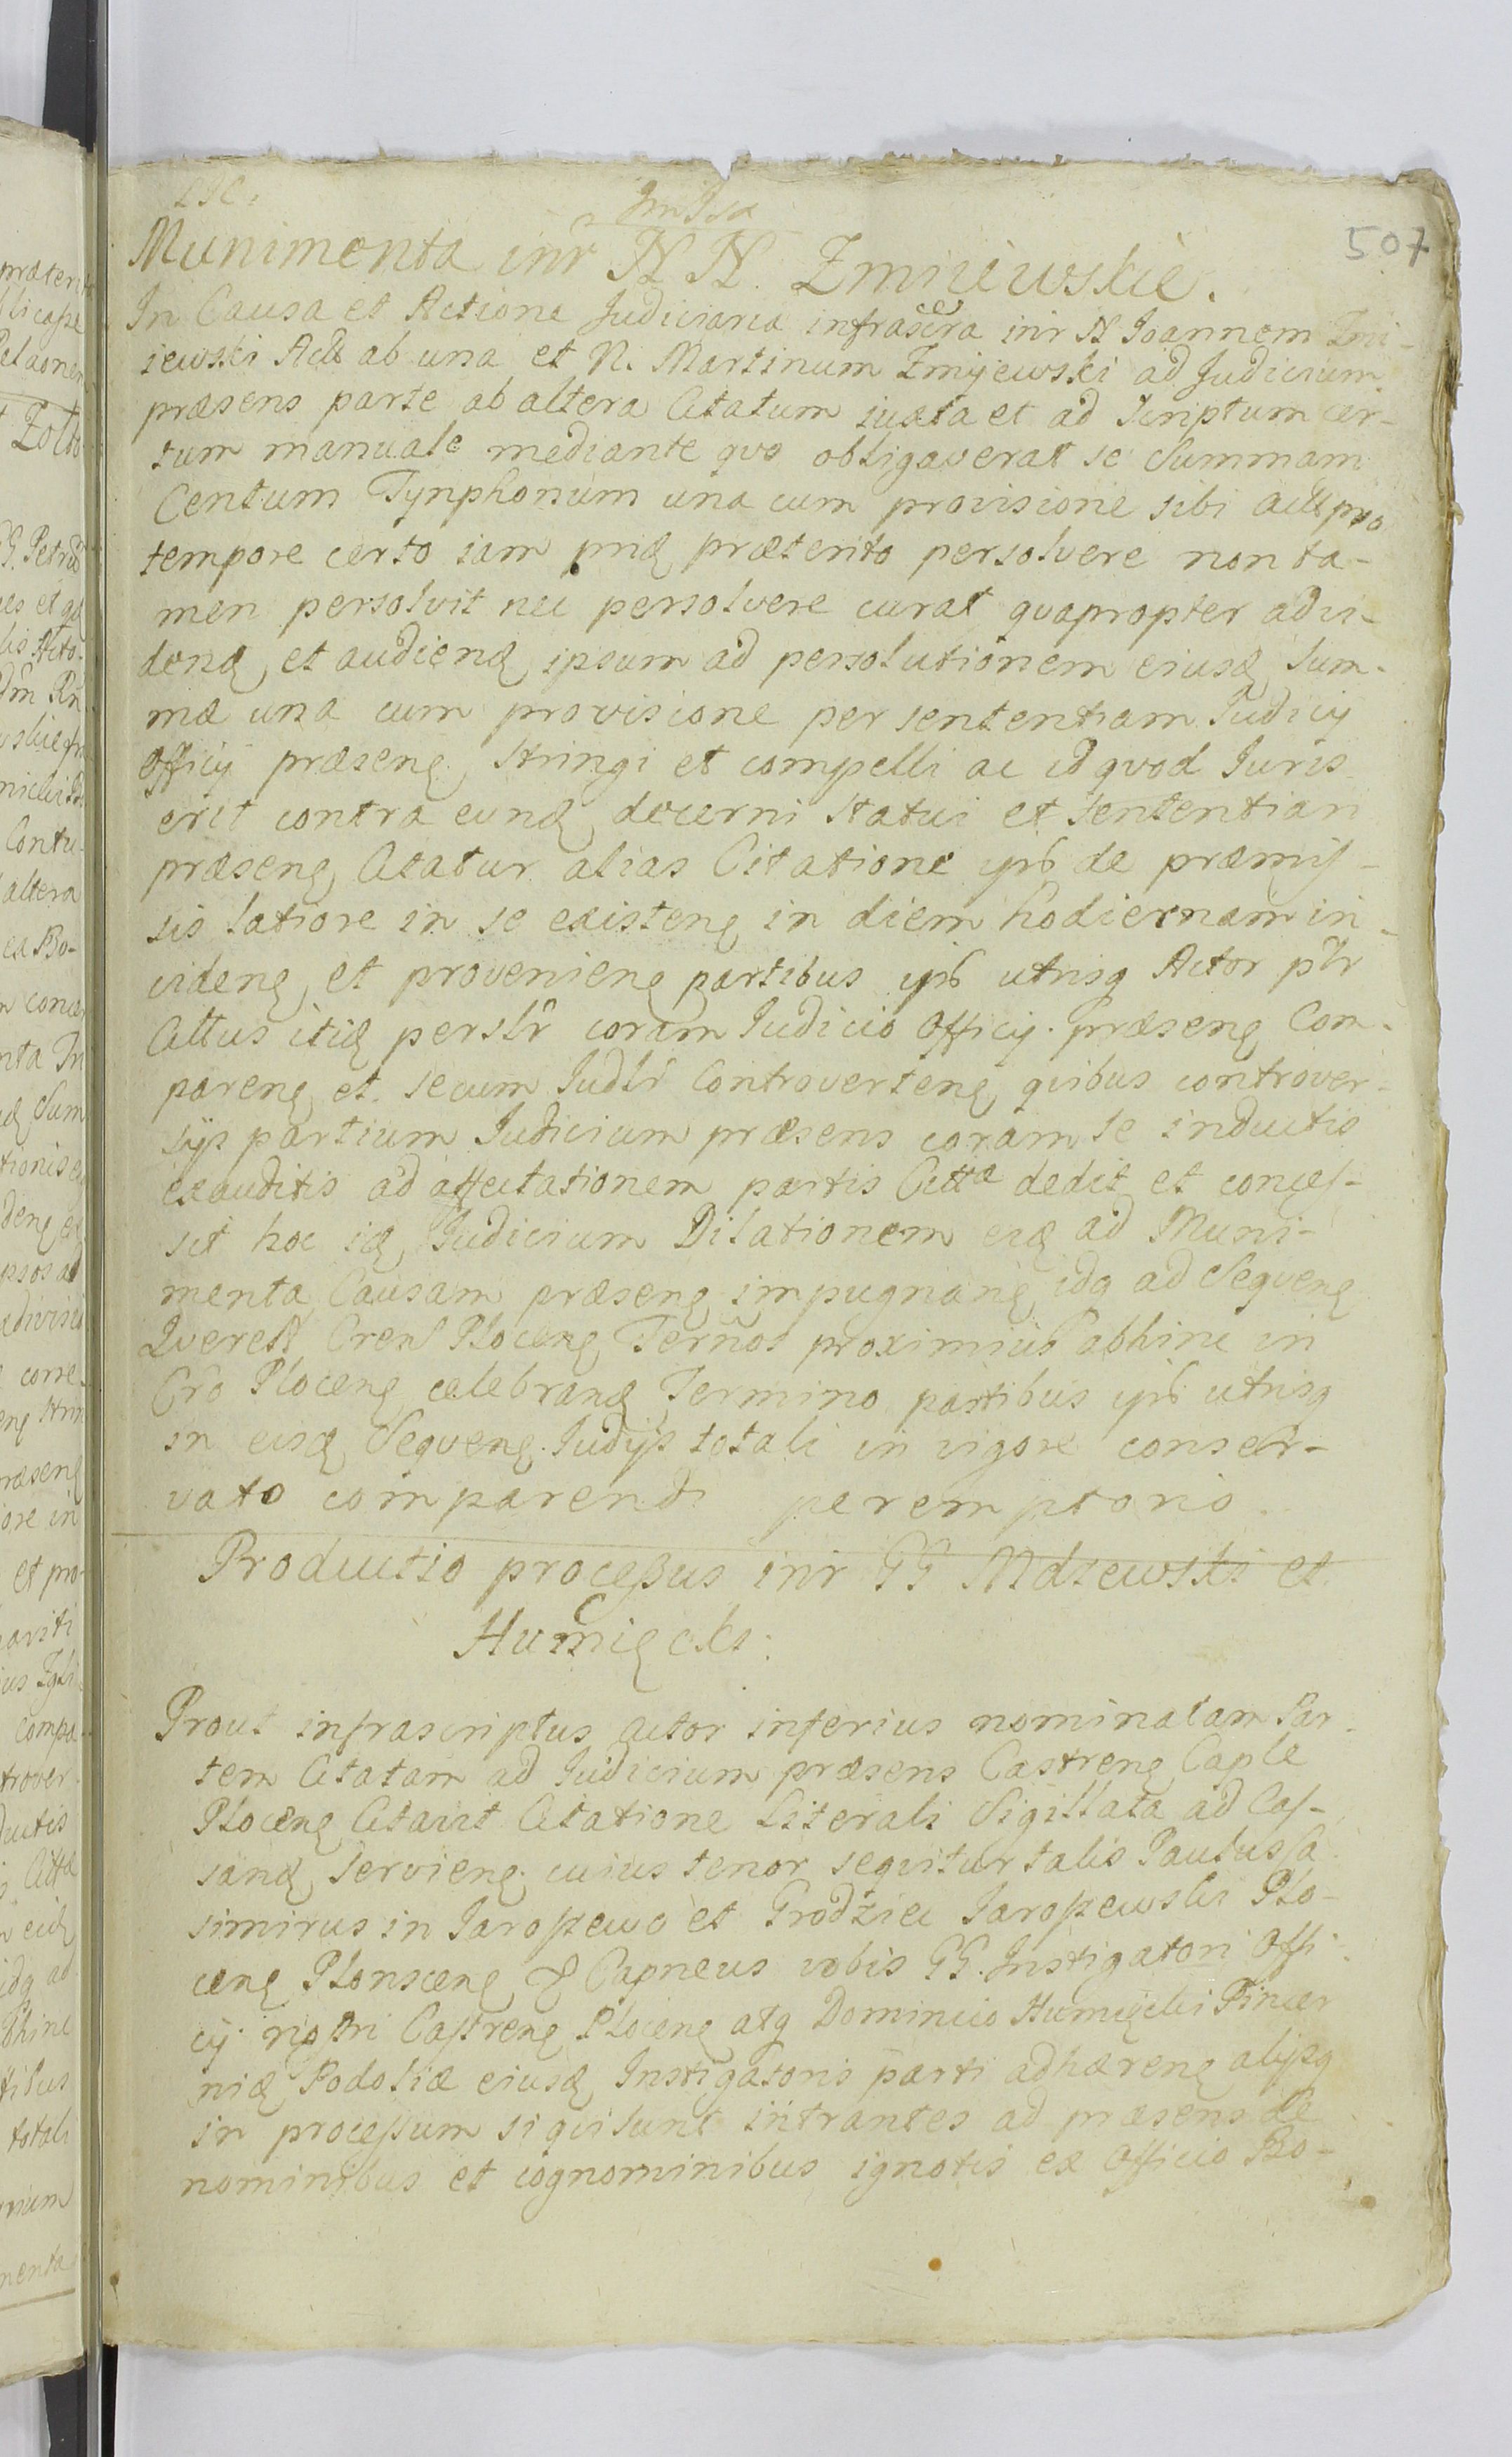 507
Munimenta inr N N. Zmiiewskie.
In Causa et Actione Judiciaria infrascra inr N Joannem Zmi-
iewski Act ab una et N. Martinum Zmijewski ad Judicium
præsens parte ab altera Citatum iuxta et ad Scriptum cer-
tum manuale mediante qvo obligaverat se Summam
Centum Tynphonum una cum provisione sibi Act pro
tempore certo iam pridę præterito persolvere non ta-
men persolvit nec persolvere curat qvapropter ad vi-
dendę et audiendę ipsum ad persolutionem eiusdę Sum-
mæ una cum provisione per sententiam Judicij
Officij præsenę stringi et compelli ac id qvod Juris
erit contra eundę decerni statui et sententiari
præsenę Citatur alias Citatione ipsa de præmis-
sis latiore in se existenę in diem hodiernam in-
cidenę et provenienę partibus ipsis utrisq Actor pltr
Cittus itidę persltr coram Judicio Officij præsenę Com-
parenę et secum Judlr Controvertenę qvibus controver-
sijs partium Judicium præsens coram se inductis
exauditis ad affectationem partis Cittæ dedit et conces-
sit hoc idę Judicium Dilationem eidę ad Muni-
menta Causam præsenę impugnanę idq ad Seqvenę
Qverell Cren Plocenę Termos proximius abhinc in
Cro Plocenę celebrandę Termino partibus ipsis utrisq
in eisdę Seqvenę Judijs totali in vigore conser-
vato comparendi peremptorio.
Productio processus inr GG Mdzewski et
Humięcki:
Prout infrascriptus Actor inferius nominatam Par-
tem Citatam ad Judicium præsens Castrenę Caple
Plocenę Citavit Citatione Literali Sigillata ad Cas-
sandę servienę cuius tenor seqvitur talis Paulus Ca
simirus in Jaroszewo et Grodziec Jaroszewski Plo-
cenę Plonscenę & Capneus vobis GG. Instigatori Offi-
cij nostri Castrenę Plocenę atq Dominico Humięcki Pincer
nidę Podoliæ eiusdę Instigatoris parti adhærenę alijsq
in processum si qvi sunt intrantes ad præsens de
nominibus et cognominibus ignotis ex Officio No-